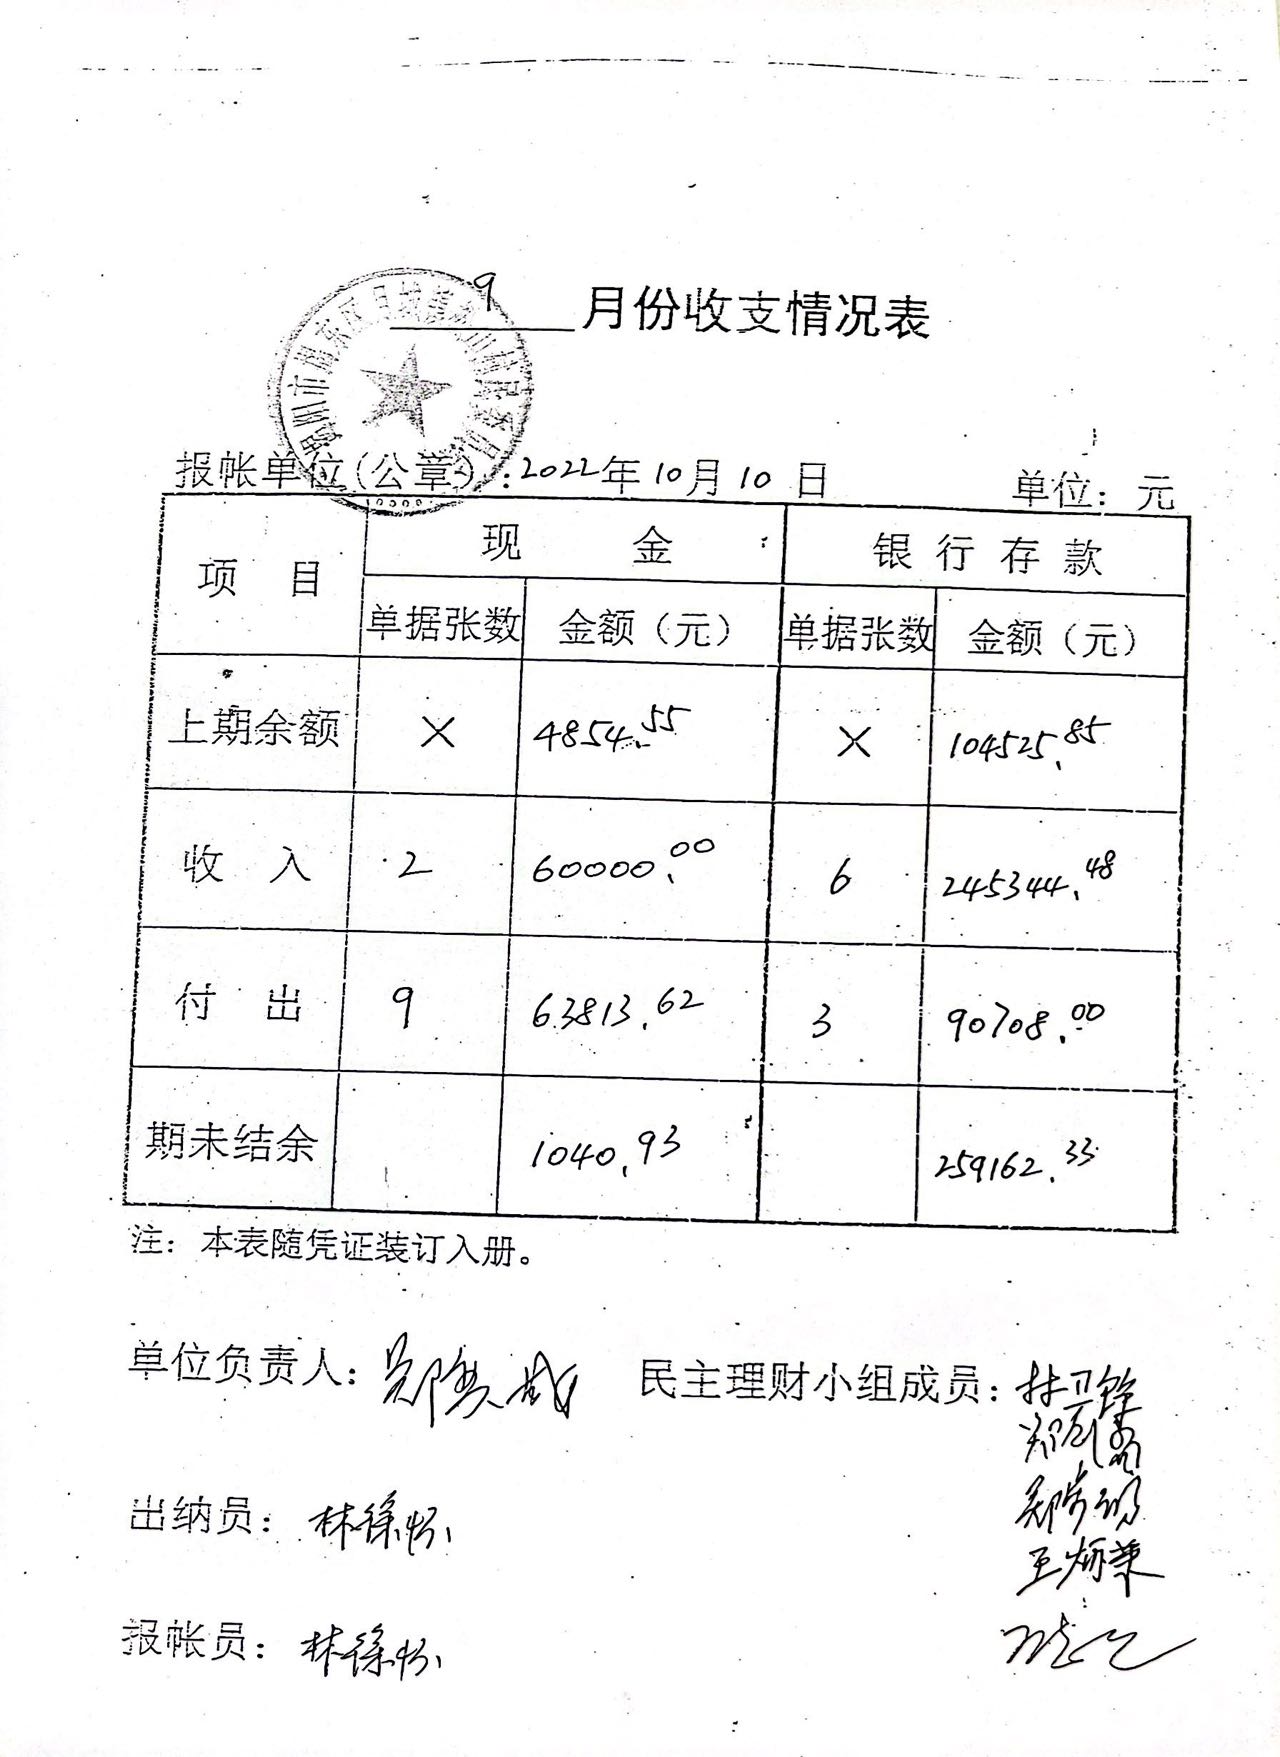 9 月份收支情况表
报帐单位(公章):2022年10月10日 单位:元
项 目 现 金 银行存款
单据张数 金额(元) 单据张数 金额(元)
上期余额 × 4854.55 × 104525.85
收 入 2 60000.00 6 245344.48
付 出 9 63813.62 3 90708.00
期未结余 1040.93 259162.33
注:本表随凭证装订入册。
单位负责人: 民主理财小组成员:
出纳员:林徐怀
报帐员:林徐怀